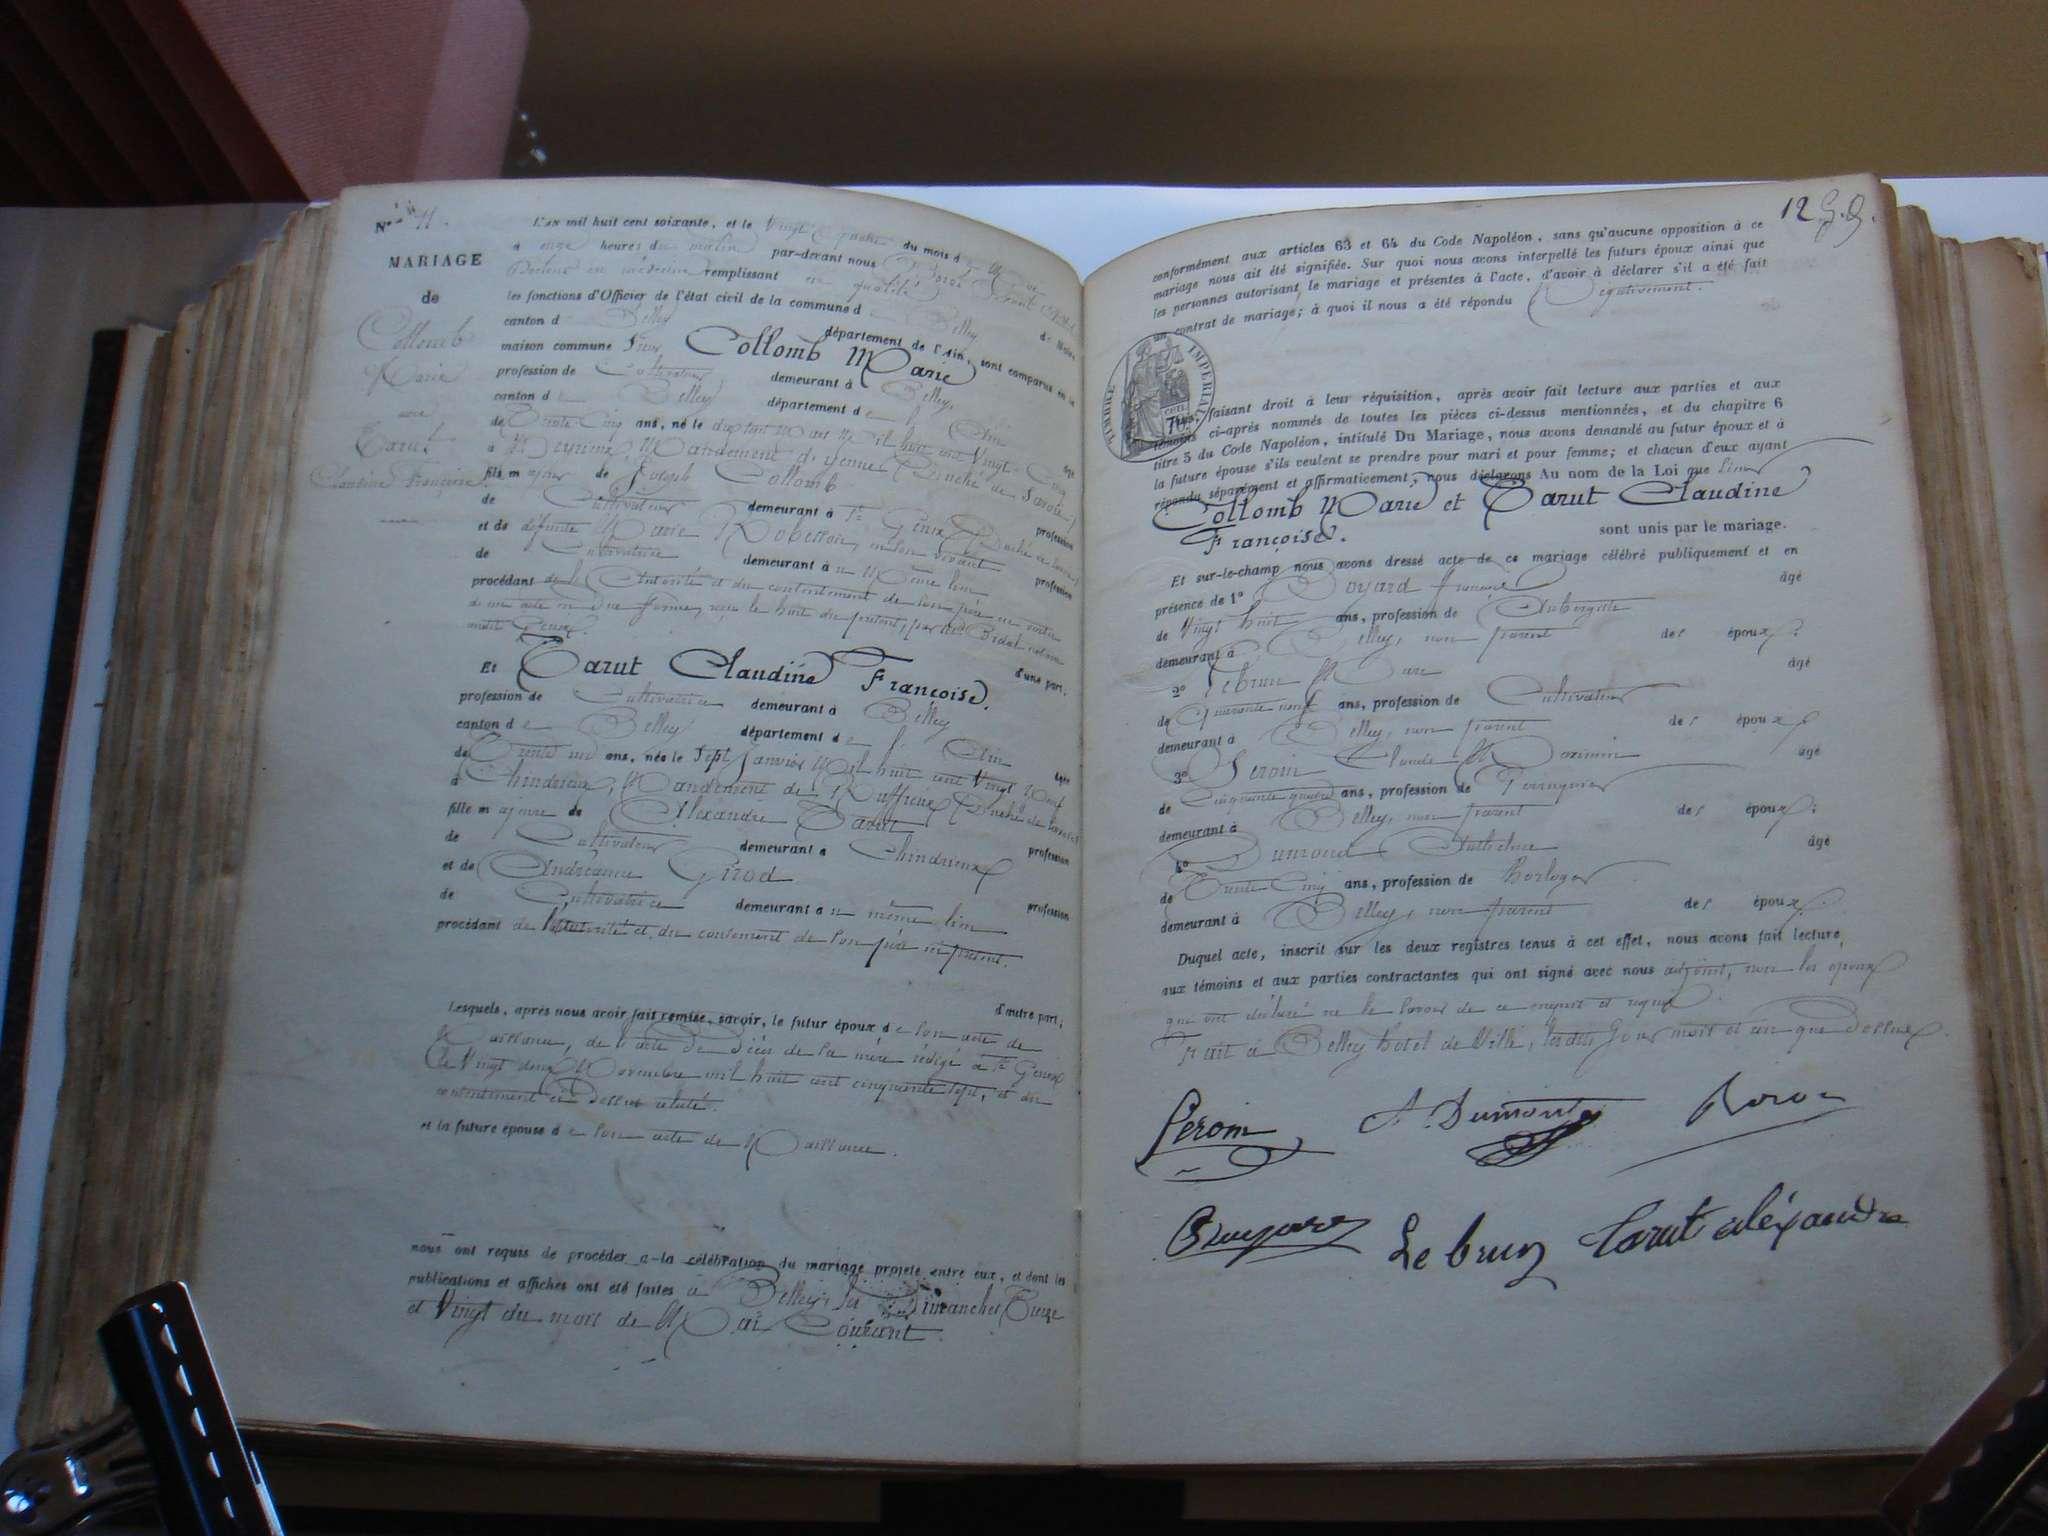 N.° 11.
MARIAGE
de
Collomb
Marie
avec
Tarut
Claudine Françoise
L'an mil huit cent soixante, et le Vingt quatre du mois d
à onze heures du matin par-devant nous
Docteur en médecine remplissant en qualité
les fonctions d'Officier de l'état civil de la commune d Belley
canton d Belley département de l'Ain, sont comparus en la
maison commune Sieur Collomb Marie
profession de Cultivateur demeurant à Belley,
canton de Belley département de l'Ain
de Trente Cinq ans, né le dix sept Mars Mil huit cent Vingt Cinq
à Meyrieux, Mandement d'yenne (Duché de Savoie)
fils majeur de Joseph Collomb profession
de Cultivateur demeurant à St Genix (Duché de Savoie)
et de défunte Marie Robesson, en son vivant profession
de Cultivatrice demeurant à u Même lieu
procédant de l'Autorité et du contentement de son père en vertu
d'un acte en due forme, reçu le huit du présent, par Me Bidal notaire
audit Genix. d'une part;
Et Tarut Claudine Françoise.
profession de Cultivatrice demeurant à Belley
canton de Belley département de l'Ain
de Trente un ans, née le Sept Janvier Mil huit cent Vingt Neuf
à Chindrieux, Mandement de Ruffieux (Duché de Savoie)
fille majeure de Alexandre Tarut profession
de Cultivateur demeurant à Chindrieux
et de Andréanne Girod profession
de Cultivatrice demeurant a u même lieu
procédant de l'Autorité et du contement de son père ici présent.
d'autre part;
Lesquels, après nous avoir fait remise, savoir, le futur époux de son acte de
Naissance, de l'acte de Décès de sa mère rédigé à St Genix
le Vingt deux Novembre mil huit cent cinquante sept, et du
contentement ci dessus relaté.
et la future épouse de son acte de Naissance.
nous ont requis de procéder a la célébration du mariage projeté entre eux, et dont les
publications et affiches ont été faites à Belley, les Dimanches Treize
et Vingt du mois de Mai Courant.
12
conformément aux articles 63 et 64 du Code Napoléon, sans qu'aucune opposition à ce
mariage nous ait été signifiée. Sur quoi nous avons interpellé les futurs époux ainsi que
les personnes autorisant le mariage et présentes à l'acte, d'avoir à déclarer s'il a été fait
un contrat de mariage; à quoi il nous a été répondu Négativement.
TIMBRE IMPERIAL
70 CENT.
Nous, faisant droit à leur réquisition, après avoir fait lecture aux parties et aux
témoins ci-après nommés de toutes les pièces ci-dessus mentionnées, et du chapitre 6
titre 5 du Code Napoléon, intitulé Du Mariage, nous avons demandé au futur époux et à
la future épouse s'ils veulent se prendre pour mari et pour femme; et chacun d'eux ayant
répondu séparément et affirmativement, nous déclarons Au nom de la Loi que Sieur
Collomb Marie et Tarut Claudine
Françoise. sont unis par le mariage.
Et sur-le-champ nous avons dressé acte de ce mariage célébré publiquement et en
présence de 1° françois âgé
de Vingt huit ans, profession de Aubergiste
demeurant à Belley, non parent des époux;
2° Lebrun Marc âgé
de Quarante neuf ans, profession de Cultivateur
demeurant à Belley, non parent des époux
3° Peroin Claude Maximin âgé
de Cinquante quatre ans, profession de Perruquier
demeurant à Belley, non parent des époux;
4° Dumond Anthelme âgé
de Trente Cinq ans, profession de horloger
demeurant à Belley, non parent des époux.
Duquel acte, inscrit sur les deux registres tenus à cet effet, nous avons fait lecture
aux témoins et aux parties contractantes qui ont signé avec nous adjoint, non les époux
qui ont déclaré ne le savoir de ce enquis et requis.
Fait à Belley hôtel de Ville, lesdits jour mois et an que dessus.
Peroin A. Dumond
Lebrun Tarut aléxandre